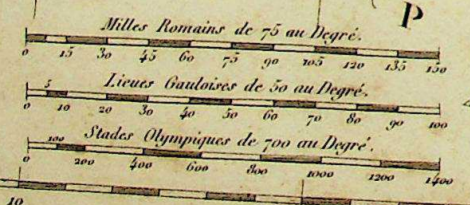 P
Milles Romains de 75 au Degré.
0 15 30 45 60 75 90 105 120 135 150
Lieues Gauloises de 50 au Degré.
5
0 10 20 30 40 50 60 70 80 90 100
Stades Olympiques de 700 au Degré.
100
0 200 400 600 800 1000 1200 1400
10